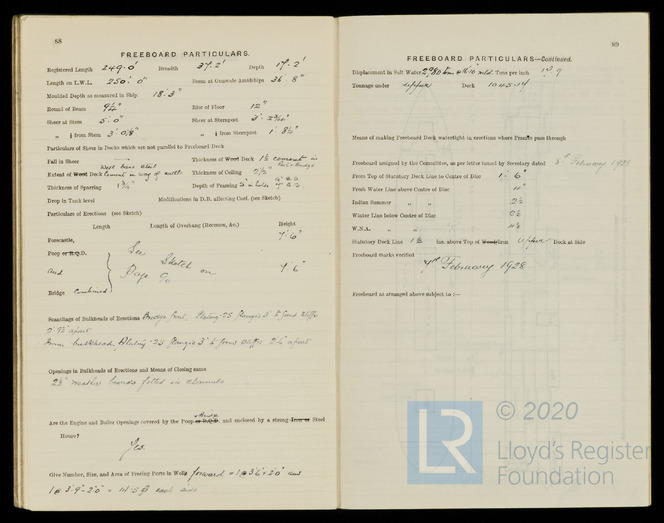 88
FREEBOARD PARTICULARS.
Registered Length 249.0' Breadth 37.2' Depth 17.2'
Length on L.W.L. 250'.0" Beam at Gunwale Amidships 36'.8"
Moulded Depth as measured in Ship 18'.3"
Round of Beam 9½" Rise of Floor 12"
Sheer at Stem 5'.0" Sheer at Sternpost
" ⅛ from Stem 3'.0⅝" " ⅛ from Sternpost 1'.8½"
Particulars of Sheer in Decks which are not parallel to Freeboard Deck
Fall in Sheer Thickness of Wood Deck 1½ cement in
Extent of Wood Deck cement in way of Thickness of Ceiling 2½"
Thickness of Sparring 1¾" Depth of Framing
Drop in Tank level Modifications in D.B. affecting Coef. (see Sketch)
Particulars of Erections (see Sketch)
Length Length of Overhang (Recesses, &c.) Height
Forecastle, 7'.6"
Poop or R.Q.D. See Sketch on
and Page 90 7'.6"
Bridge combined
Scantlings of Bulkheads of Erections Bridge front, Plating .25 flanged 3" to form stiffrs
2'.9½ apart
bulkhead, Plating .25 flanged 3" to form stiffrs 2'.6 apart
Openings in Bulkheads of Erections and Means of Closing same
2½" weather boards fitted in channels
Are the Engine and Boiler Openings covered by the Poop or R.Q.D. and enclosed by a strong Iron or Steel
& Bridge
House?
Yes.
Give Number, Size, and Area of Freeing Ports in Wells forward = 1 @ 3'6" × 2'0" and
1 @ 3'.9" × 2'0" = 14.5 each side
89
FREEBOARD PARTICULARS—Continued.
Displacement in Salt Water 2980 tons Tons per inch 19.9
Tonnage under upper Deck 1045.14
Means of making Freeboard Deck watertight in erections where Frames pass through
Freeboard assigned by the Committee, as per letter issued by Secretary dated 3rd February 1928
From Top of Statutory Deck Line to Centre of Disc 1'. 6"
Fresh Water Line above Centre of Disc 4"
Indian Summer " " 2½
Winter Line below Centre of Disc 2½
W.N.A. " " 4½
Statutory Deck Line 1½ ins. above Top of Wood/Iron Upper Deck at Side
Freeboard marks verified
February 1928
Freeboard as arranged above subject to :—
LR
© 2020
Lloyd's Register
Foundation